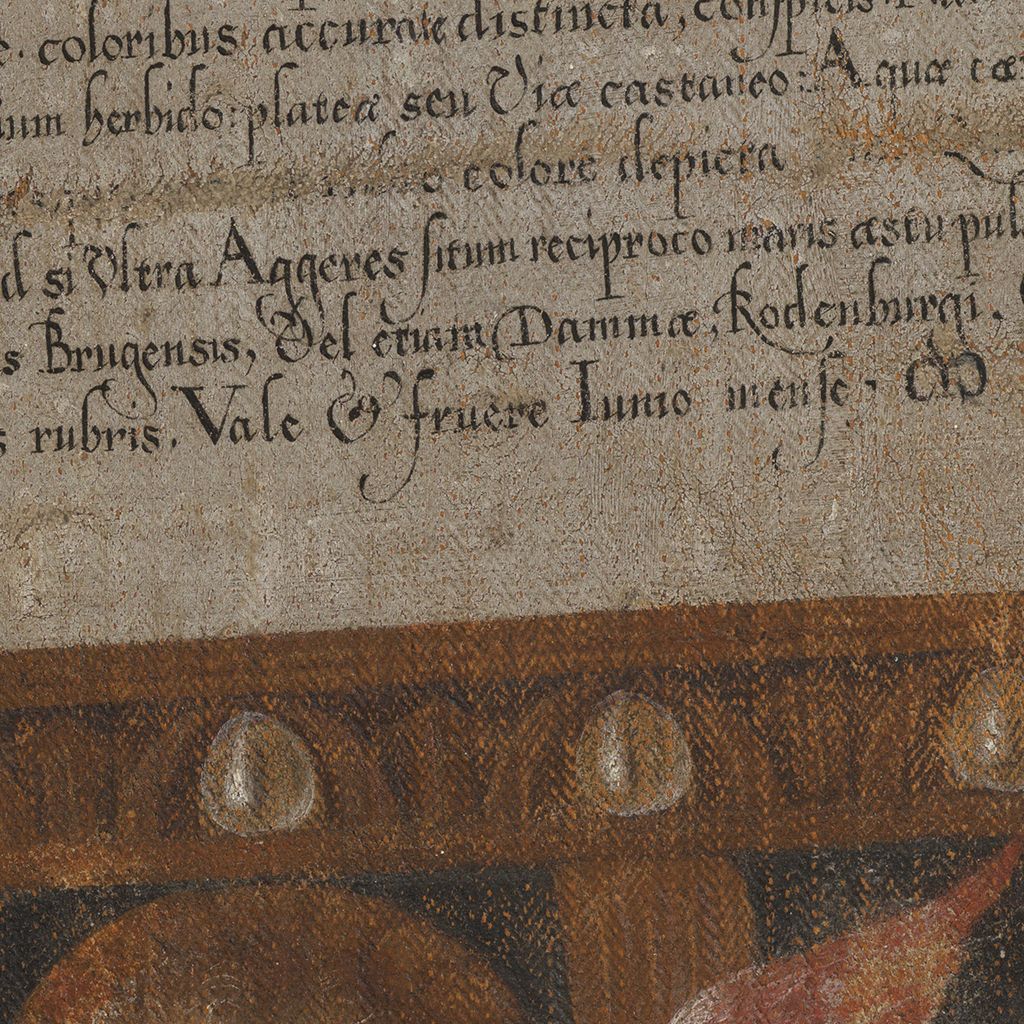 coloribus accurate distincta, conspicis
herbido: plateæ seu Viæ castaneo: Aquæ
colore depicta
si Vltra Aggeres situm reciproco maris æstu
Brugensis, Vel etiam Dammæ, Rodenburgi,
rubris. Vale & fruere Iunio mense.